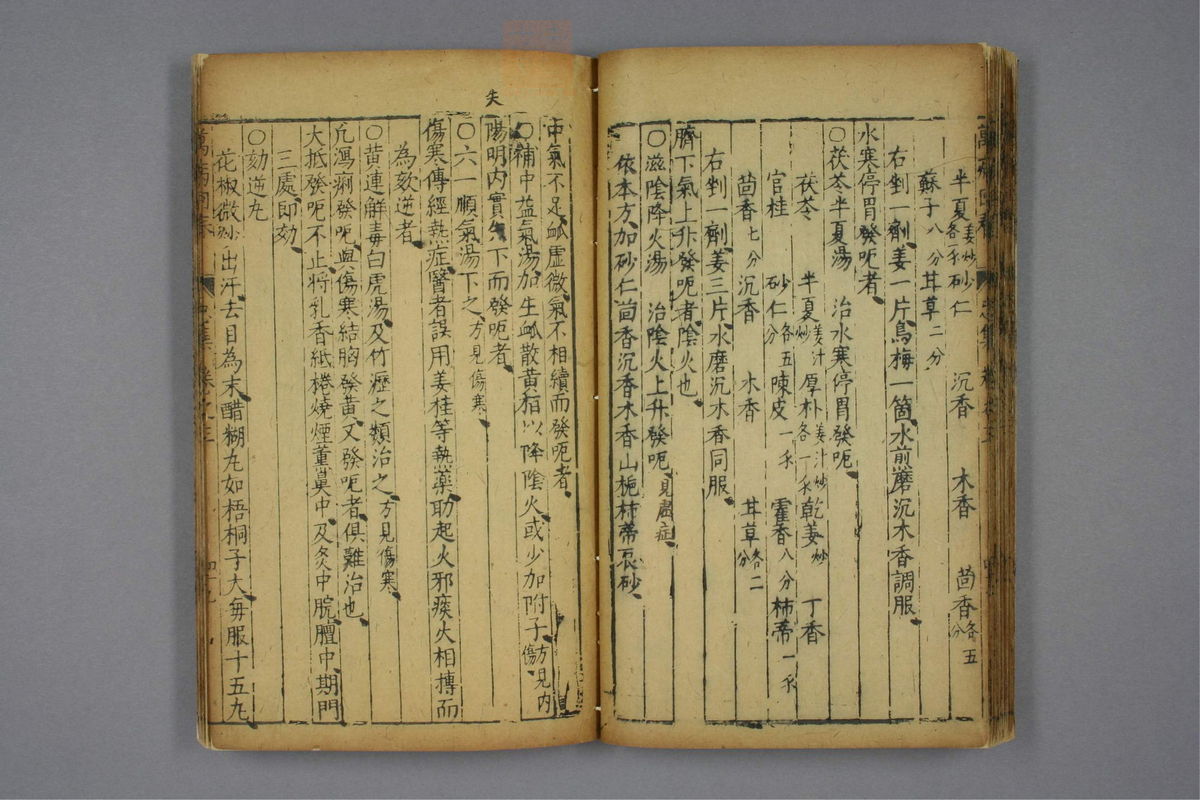 半夏姜汁炒各一錢 砂仁 沉香 木香 茴香各五分
蘇子八分 甘草二分
右剉一劑姜一片烏梅一箇水煎磨沉木香調服
水寒停胃發呃者
○茯苓半夏湯 治水寒停胃發呃
茯苓 半夏姜汁炒 厚朴姜汁炒各一錢 乾姜炒 丁香
官桂 砂仁各五分 陳皮一錢 藿香八分 柿蒂一錢
茴香七分 沉香 木香 甘草各二分
右剉一劑姜三片水磨沉木香同服
臍下氣上升發呃者陰火也
○滋陰降火湯 治陰火上升發呃見虛症
依本方加砂仁茴香沉香木香山梔柿蒂辰砂
失
中氣不足衇虛微氣不相續而發呃者
○補中益氣湯加生衇散黃栢以降陰火或少加附子方見內傷
陽明內實失下而發呃者
○六一順氣湯下之方見傷寒
傷寒傳經熱症醫者誤用姜桂等熱藥助起火邪痰火相搏而
為欬逆者
○黃連解毒白虎湯及竹瀝之類治之方見傷寒
凡瀉痢發呃與傷寒結胸發黃又發呃者俱難治也
大抵發呃不止將乳香紙捲燒煙薰鼻中及灸中脘膻中期門
三處即効
○劾逆丸
花椒微炒 出汗去目為末醋糊丸如梧桐子大每服十五丸